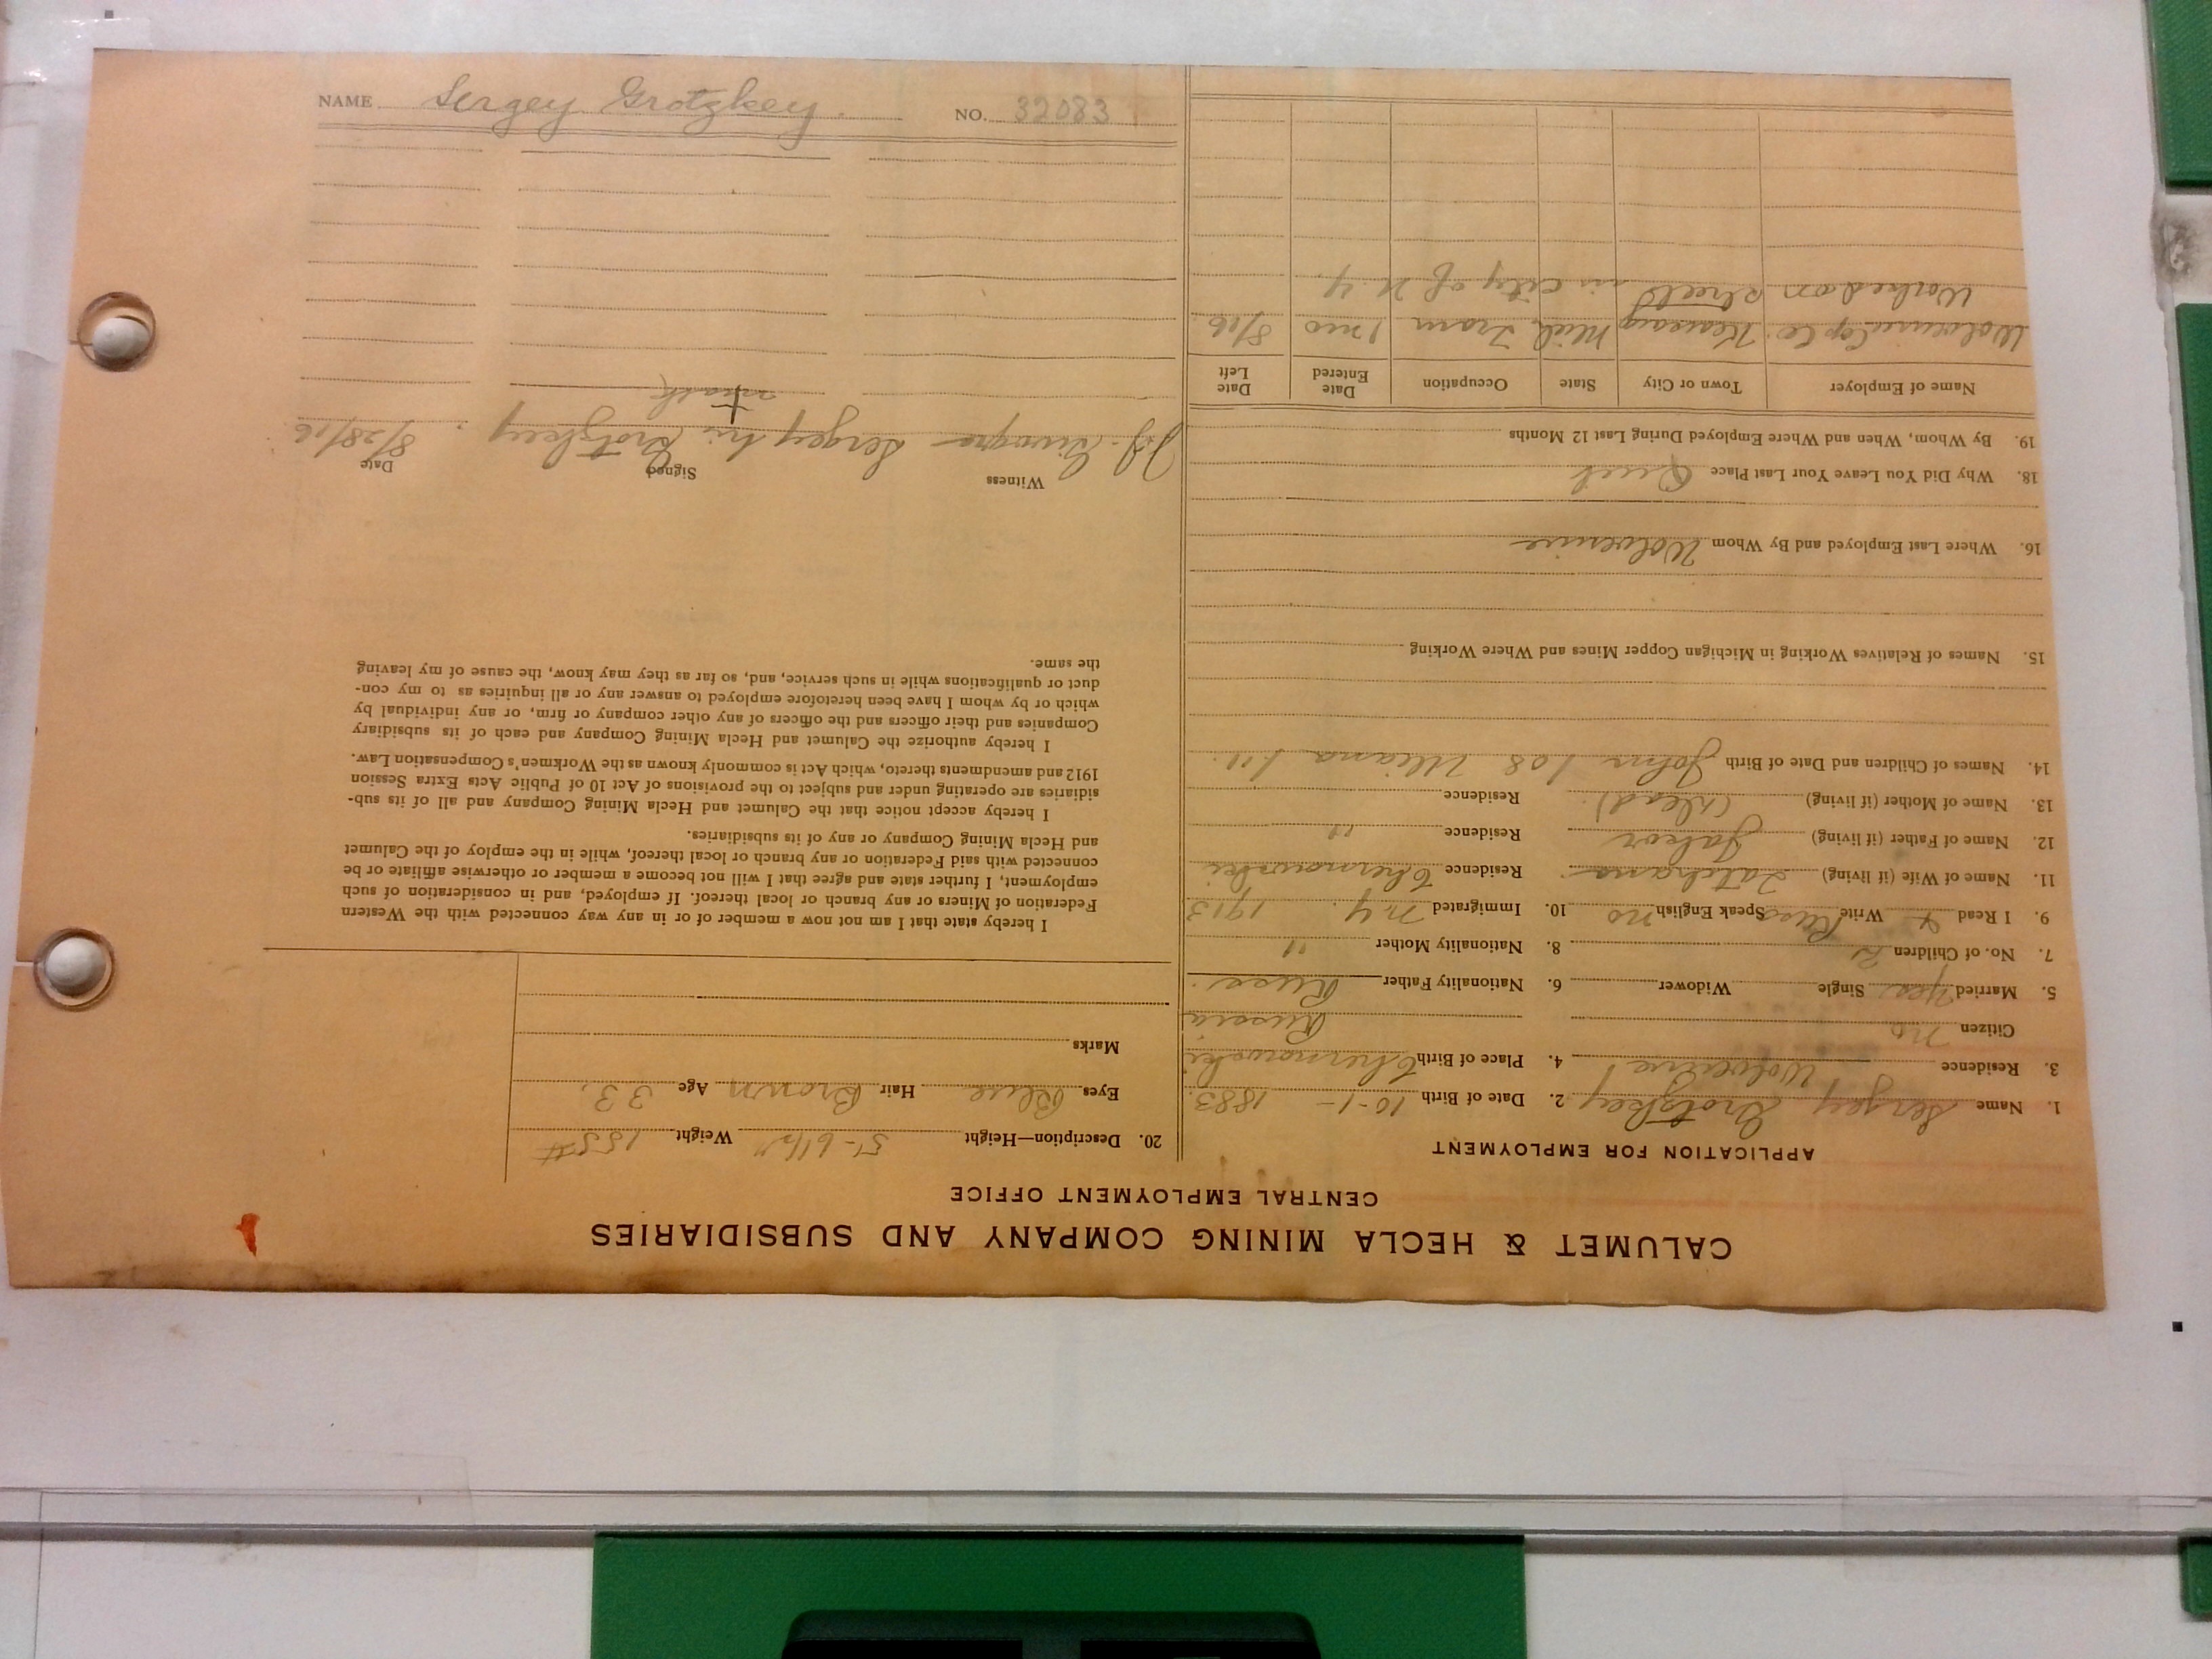 CALUMET & HECLA MINING COMPANY AND SUBSIDIARIES
CENTRAL EMPLOYMENT OFFICE
APPLICATION FOR EMPLOYMENT
1. Name Sergey Grotzkey 2. Date of Birth 10-1- 1883.
3. Residence Wolverine 4. Place of Birth
Citizen no Russia
5. Married Yes Single Widower 6. Nationality Father Russ.
7. No. of Children 2 8. Nationality Mother "
9. I Read & Write Russ Speak English no 10. Immigrated N.Y. 1913
11. Name of Wife (if living) Residence
12. Name of Father (if living) Jakov Residence "
13. Name of Mother (if living) (dead) Residence
14. Names of Children and Date of Birth John 1/08
15. Names of Relatives Working in Michigan Copper Mines and Where Working
16. Where Last Employed and By Whom Wolverine
18. Why Did You Leave Your Last Place Quit
19. By Whom, When and Where Employed During Last 12 Months
Name of Employer Town or City State Occupation Date Entered Date Left
Wolverine Cop Co. Kearsarg Mich. Tram 1 mo 8/16
Worked on streets in city of N.Y.
20. Description—Height 5-6 1/2" Weight 155#
Eyes Blue Hair Brown Age 33.
Marks
I hereby state that I am not now a member of or in any way connected with the Western
Federation of Miners or any branch or local thereof. If employed, and in consideration of such
employment, I further state and agree that I will not become a member or otherwise affiliate or be
connected with said Federation or any branch or local thereof, while in the employ of the Calumet
and Hecla Mining Company or any of its subsidiaries.
I hereby accept notice that the Calumet and Hecla Mining Company and all of its sub-
sidiaries are operating under and subject to the provisions of Act 10 of Public Acts Extra Session
1912 and amendments thereto, which Act is commonly known as the Workmen's Compensation Law.
I hereby authorize the Calumet and Hecla Mining Company and each of its subsidiary
Companies and their officers and the officers of any other company or firm, or any individual by
which or by whom I have been heretofore employed to answer any or all inquiries as to my con-
duct or qualifications while in such service, and, so far as they may know, the cause of my leaving
the same.
Witness Signed Date
Sergey his Grotzkey. 8/28/16
mark
NAME Sergey Grotzkey. NO. 32083